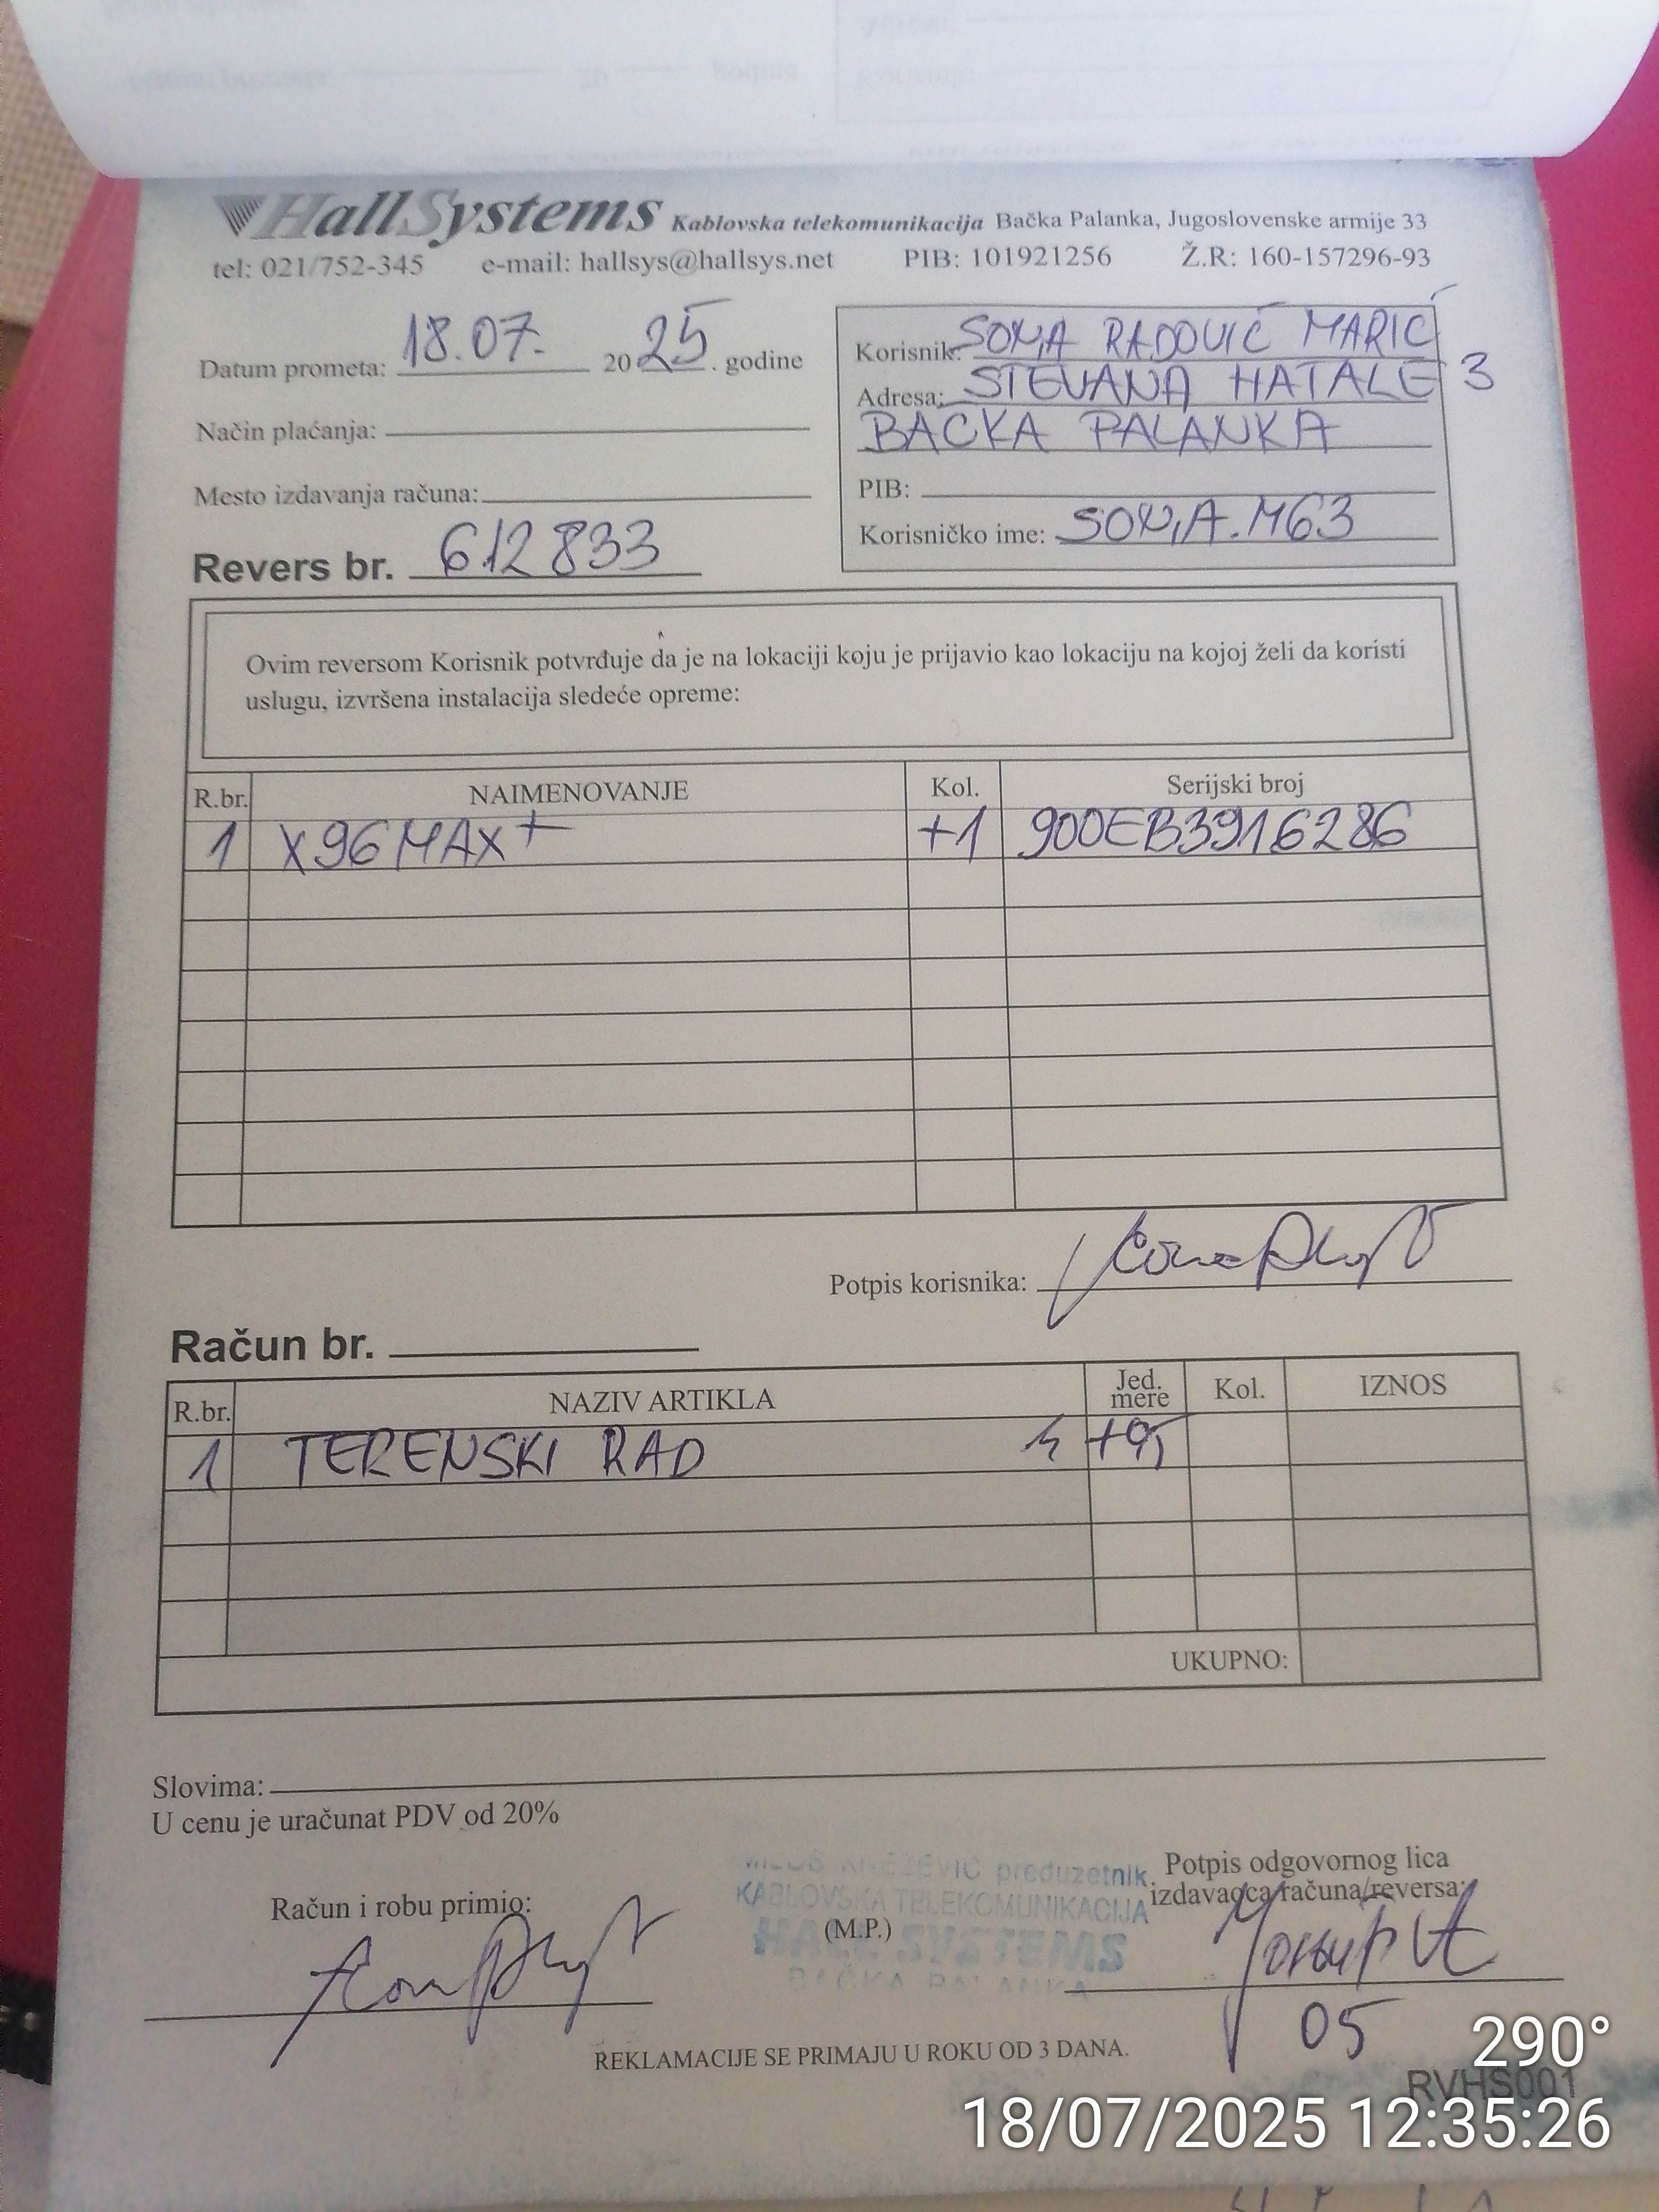 HallSystems Kablovska telekomunikacija Bačka Palanka, Jugoslovenske armije 33
tel: 021/752-345 e-mail: hallsys@hallsys.net PIB: 101921256 Ž.R: 160-157296-93
Datum prometa: 18.07. 2025. godine
Način plaćanja:
Mesto izdavanja računa:
Revers br. 612833
Korisnik: SONJA RADOVIĆ MARIĆ
Adresa: STEVANA HATALE 3
BACKA PALANKA
PIB:
Korisničko ime: SONJA.M63
Ovim reversom Korisnik potvrđuje da je na lokaciji koju je prijavio kao lokaciju na kojoj želi da koristi
uslugu, izvršena instalacija sledeće opreme:
R.br. NAIMENOVANJE Kol. Serijski broj
1 X96MAX+ +1 900EB3916286
Potpis korisnika:
Račun br.
R.br. NAZIV ARTIKLA Jed. mere Kol. IZNOS
1 TERENSKI RAD
UKUPNO:
Slovima:
U cenu je uračunat PDV od 20%
Račun i robu primio:
preduzetnik
KABLOVSKA TELEKOMUNIKACIJA
(M.P.)
HALL SYSTEMS
BAČKA PALANKA
Potpis odgovornog lica
izdavaoca računa/reversa:
05
REKLAMACIJE SE PRIMAJU U ROKU OD 3 DANA.
RVHS001
290°
18/07/2025 12:35:26